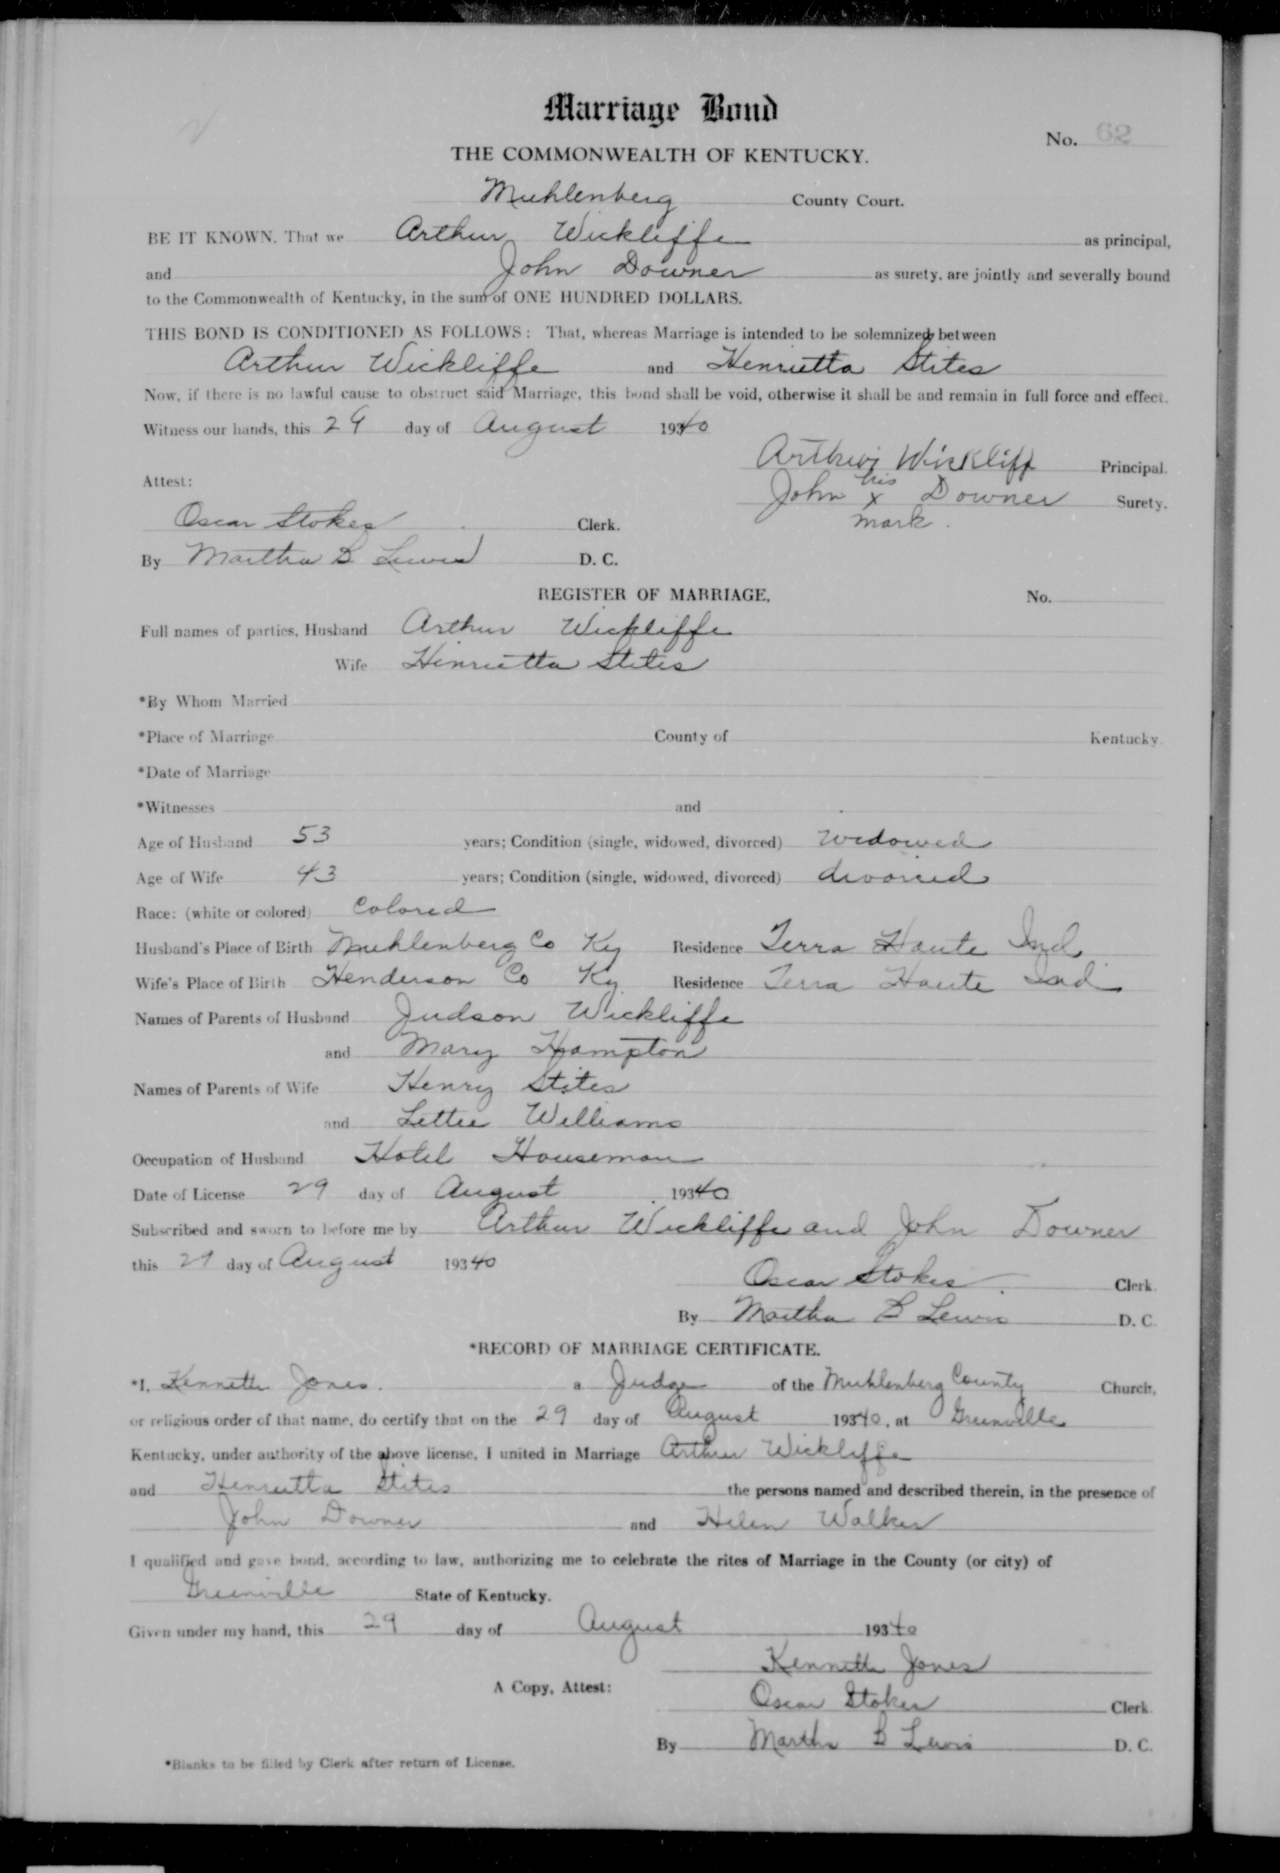 Marriage Bond
No. 62
THE COMMONWEALTH OF KENTUCKY.
Muhlenberg County Court.
BE IT KNOWN, That we Arthur Wickliffe as principal,
and John Downer as surety, are jointly and severally bound
to the Commonwealth of Kentucky, in the sum of ONE HUNDRED DOLLARS.
THIS BOND IS CONDITIONED AS FOLLOWS: That, whereas Marriage is intended to be solemnized between
Arthur Wickliffe and Henrietta Stites
Now, if there is no lawful cause to obstruct said Marriage, this bond shall be void, otherwise it shall be and remain in full force and effect.
Witness our hands, this 29 day of August 19340
Arthur Wickliff Principal.
Attest:
John his x Downer Surety.
mark.
Oscar Stokes Clerk.
By Martha B Lewis D. C.
REGISTER OF MARRIAGE, No.
Full names of parties, Husband Arthur Wickliffe
Wife Henrietta Stites
*By Whom Married
*Place of Marriage County of Kentucky
*Date of Marriage
*Witnesses and
Age of Husband 53 years; Condition (single, widowed, divorced) widowed
Age of Wife 43 years; Condition (single, widowed, divorced) divorced
Race: (white or colored) Colored
Husband's Place of Birth Muhlenberg Co Ky Residence Terra Haute Ind
Wife's Place of Birth Henderson Co Ky Residence Terra Haute Ind
Names of Parents of Husband Judson Wickliffe
and Mary Hampton
Names of Parents of Wife Henry Stites
and Lettie Williams
Occupation of Husband Hotel Houseman
Date of License 29 day of August 19340
Subscribed and sworn to before me by Arthur Wickliffe and John Downer
this 29 day of August 19340
Oscar Stokes Clerk.
By Martha B Lewis D. C.
*RECORD OF MARRIAGE CERTIFICATE.
*I, Kenneth Jones. a Judge of the Muhlenberg County Church,
or religious order of that name, do certify that on the 29 day of August 19340, at Greenville
Kentucky, under authority of the above license, I united in Marriage Arthur Wickliffe
and Henrietta Stites the persons named and described therein, in the presence of
John Downer and Helen Walker
I qualified and gave bond, according to law, authorizing me to celebrate the rites of Marriage in the County (or city) of
Greenville State of Kentucky.
Given under my hand, this 29 day of August 19340
Kenneth Jones
A Copy, Attest:
Oscar Stokes Clerk
By Martha B Lewis D. C.
*Blanks to be filled by Clerk after return of License.